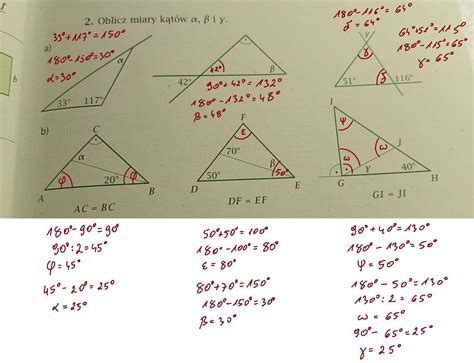 2. Oblicz miary kątów α, β i γ.
a)
33°+117°=150°
180°-150°=30°
α=30°
33°
117°
α
42°
42°
β
90°+42°=132°
180°-132°=48°
β=48°
180°-116°=64°
δ=64°
64°+51°=115°
180°-115°=65°
γ=65°
γ
γ
51°
δ
116°
b
b)
C
α
φ
20°
φ
A
B
AC = BC
F
ε
70°
β
50°
50°
D
E
DF = EF
I
ψ
J
ω
ε
γ
40°
G
H
GI = JI
180°-90°=90°
90°:2=45°
φ=45°
45°-20°=25°
α=25°
50°+50°=100°
180°-100°=80°
ε=80°
80°+70°=150°
180°-150°=30°
β=30°
90°+40°=130°
180°-130°=50°
φ=50°
180°-50°=130°
130°:2=65°
ω=65°
90°-65°=25°
γ=25°